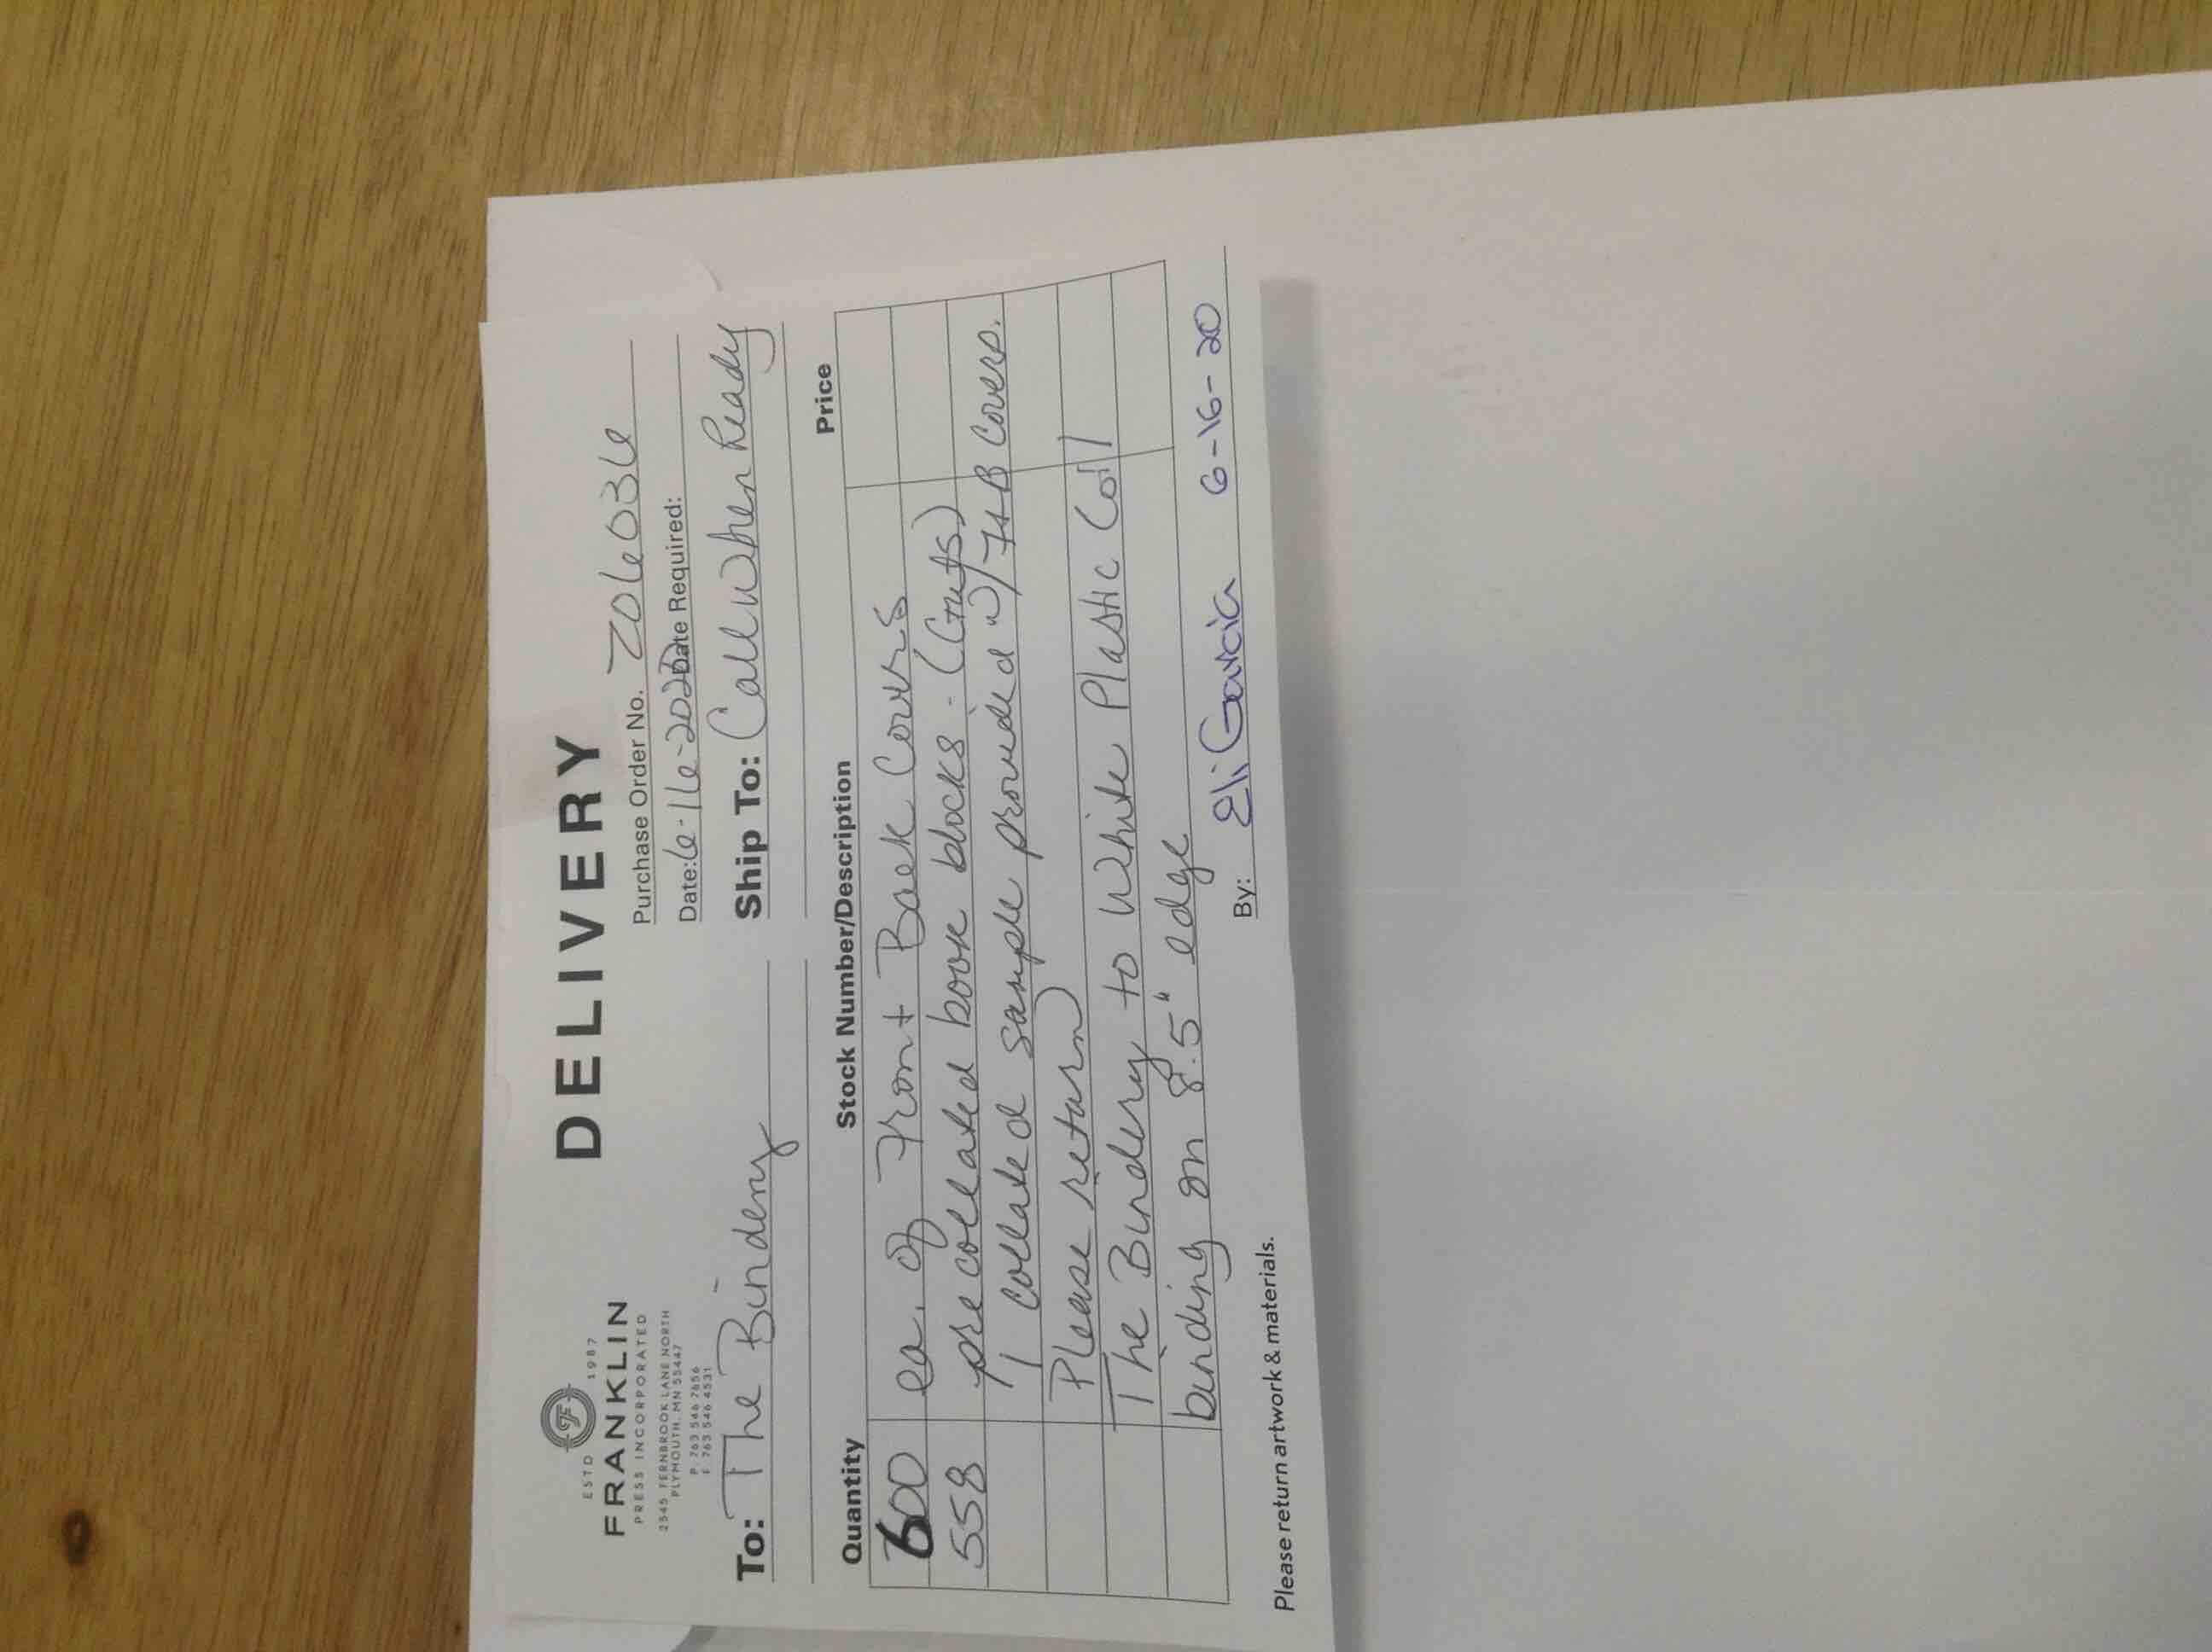 ESTD 1987
FRANKLIN
PRESS INCORPORATED
2545 FERNBROOK LANE NORTH
PLYMOUTH, MN 55447
P 763 546 7656
F 763 546 4531
DELIVERY
Purchase Order No. 2016036
Date: 6-16-2020 Date Required:
To: The Bindery
Ship To: Call when Ready
Quantity Stock Number/Description Price
600 ea. of Front + Back Covers
558 precollated book blocks -
1 collated sample provided w/ F+B Covers.
Please return)
The Bindery to White Plastic Coil
binding on 8.5" edge
By: Eli Garcia 6-16-20
Please return artwork & materials.